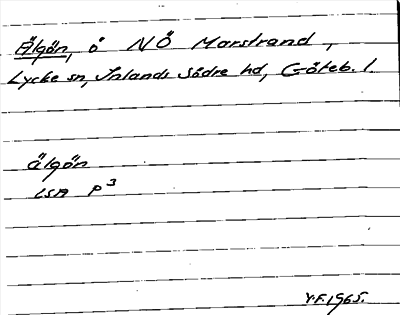 Älgön, ö NÖ Marstrand,
Lycke sn, Inlands Södre hd, Göteb. l.
älgön
LSA P3
V.F. 1965.